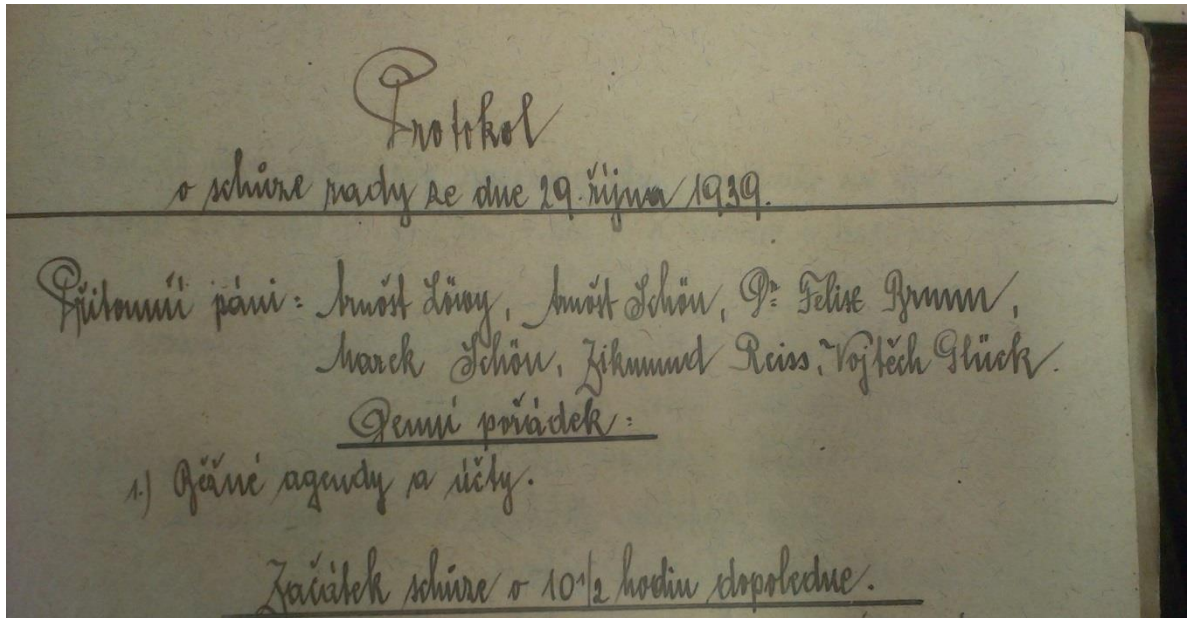 Protokol
o schůze rady ze dne 29. října 1939.
Přítomní páni: Arnošt Löwy, Arnošt Schön, Dr. Felix Brumm,
Marek Schön, Zikmund Reiss, Vojtěch Glück.
Denní pořádek:
1.) Běžné agendy a účty.
Začátek schůze o 10 1/2 hodin dopoledne.